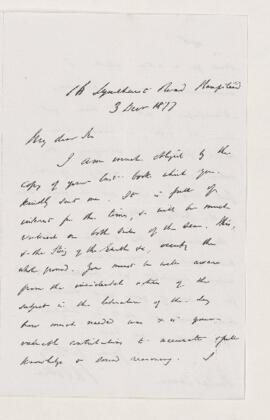 16 Lyndhurst Road Hampstead
3 Decr 1877
My dear Sir
I am much obliged by the
copy of your last book which you
kindly sent me. It is full of
interest for the time, & will be much
on both sides of the sea. This,
& the Story of the Earth &c, occupy the
whole ground. You must be well aware
from the incidental notices of the
subject in the literature of the day
how much needed was & is your
valuable contribution to accurate
knowledge & sound reasoning. I